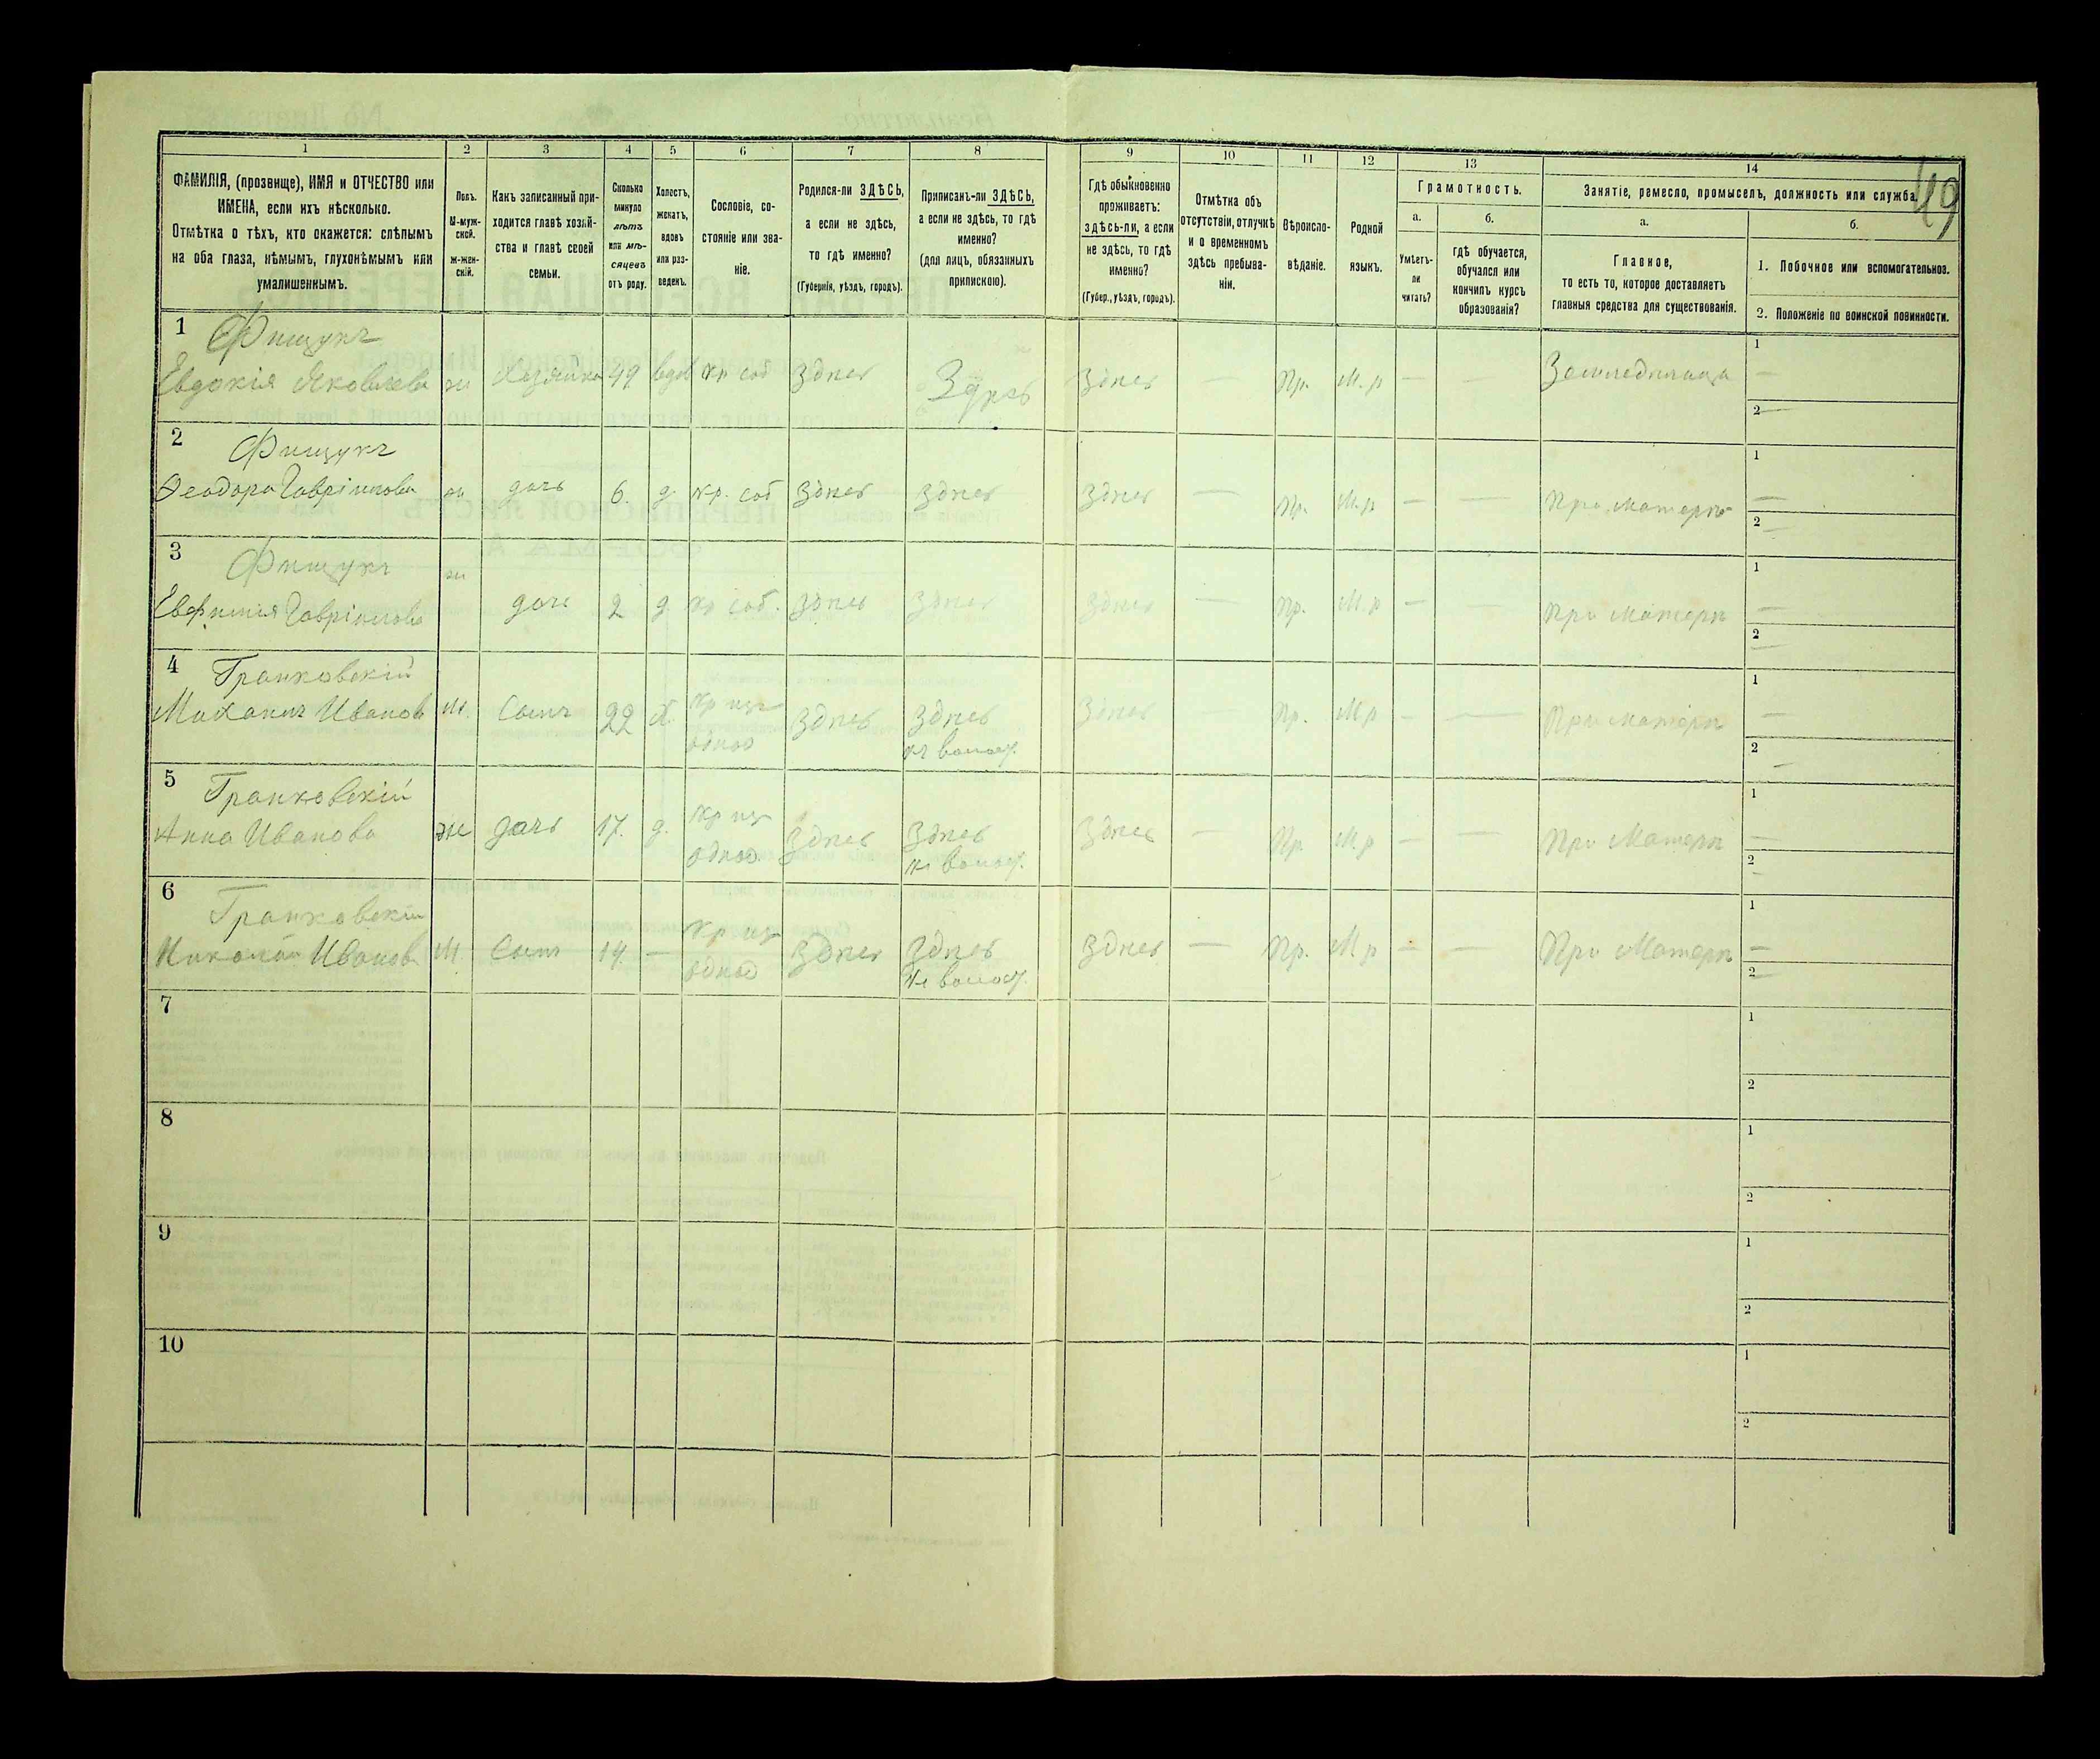 49
1 2 3 4 5 6 7 8 9 10 11 12 13 14
ФАМИЛІЯ, (прозвище), ИМЯ и ОТЧЕСТВО или
ИМЕНА, если ихъ нѣсколько.
Отмѣтка о тѣхъ, кто окажется: слѣпымъ
на оба глаза, нѣмымъ, глухонѣмымъ или
умалишеннымъ.
Полъ.
М-муж-
ской.
ж-жен-
скій.
Какъ записанный при-
ходится главѣ хозяй-
ства и главѣ своей
семьи.
Сколько
минуло
лѣтъ
или мѣ-
сяцевъ
отъ роду.
Холостъ,
женатъ,
вдовъ
или раз-
веденъ.
Сословіе, со-
стояніе или зва-
ніе.
Родился-ли ЗДѢСЬ,
а если не здѣсь,
то гдѣ именно?
(Губернія, уѣздъ, городъ).
Приписанъ-ли ЗДѢСЬ,
а если не здѣсь, то гдѣ
именно?
(для лицъ, обязанныхъ
припискою).
Гдѣ обыкновенно
проживаетъ:
здѣсь-ли, а если
не здѣсь, то гдѣ
именно?
(Губер., уѣздъ, городъ).
Отмѣтка объ
отсутствіи, отлучкѣ
и о временномъ
здѣсь пребыва-
ніи.
Вѣроиспо-
вѣданіе.
Родной
языкъ.
Грамотность.
а.
Умѣетъ-
ли
читать?
б.
гдѣ обучается,
обучался или
кончилъ курсъ
образованія?
Занятіе, ремесло, промыселъ, должность или служба.
а.
Главное,
то есть то, которое доставляетъ
главныя средства для существованія.
б.
1. Побочное или вспомогательное.
2. Положеніе по воинской повинности.
1 Фищукъ
Евдокія Яковлева ж Хозяйка 49 вдов кр. соб здѣсь Здѣсь здѣсь — Пр. М.р — — Земледѣлица 1 —
2 —
2 Фищукъ
Ѳеодора Гавріилова ж дочь 6. д. кр. соб здѣсь здѣсь здѣсь — Пр. М.р — — При матери 1 —
2 —
3 Фищукъ
Евфимія Гавріилова ж дочь 2 д. кр соб. здѣсь здѣсь здѣсь — Пр. М.р — — При матери 1 —
2 —
4 Гранковскій
Михаилъ Иванов М. Сынъ 22 х. кр изъ
однод здѣсь здѣсь
къ волост. здѣсь — Пр. М.р — — При матери 1 —
2 —
5 Гранковскій
Анна Иванова же дочь 17. д. кр изъ
однод. здѣсь здѣсь
къ волост. здѣсь — Пр М.р — — При Матери 1 —
2 —
6 Гранковскій
Николай Иванов М. Сынъ 14. — кр. изъ
однод здѣсь здѣсь
къ волост. здѣсь — Пр. М р — — При Матери 1 —
2 —
7 1
2
8 1
2
9 1
2
10 1
2